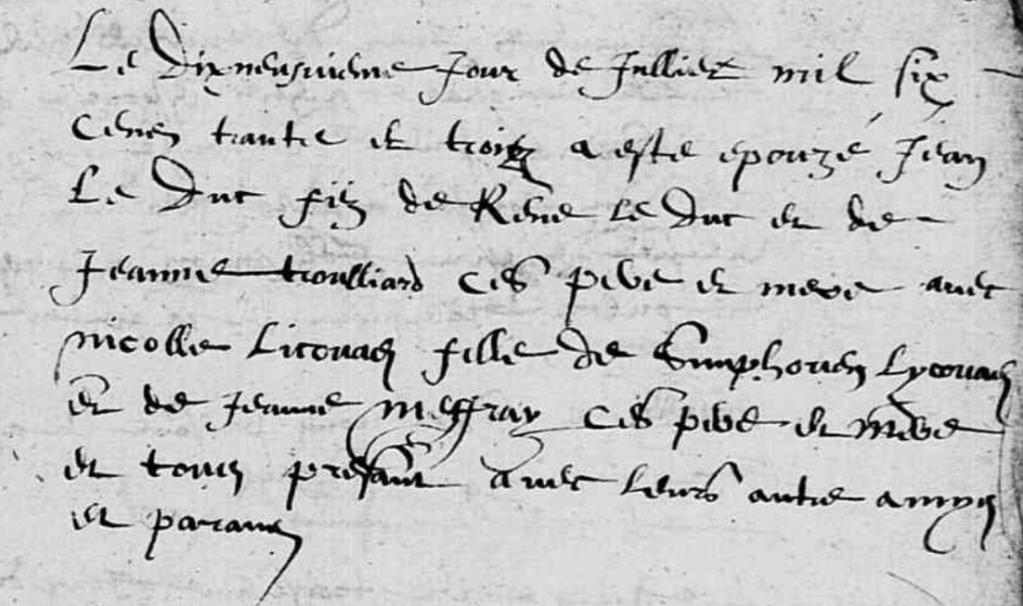 Le Dixneufvieme Jour de Julliet mil six
cens trante et trois a este epouzé Jean
Le Duc fiz de Rene Le Duc et de
Jeanne troulliard ces pere et mere avec
nicolle Licouas fille de Simphorien Lycouas
et de Jeanne Meffray ces pere et mere
et tous presant avec leurs autre amys
et parans